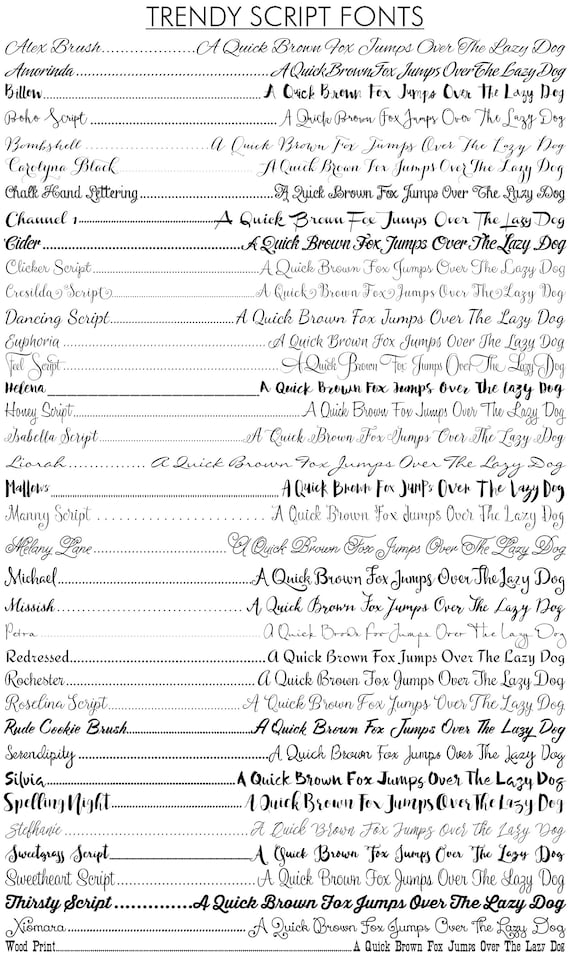 TRENDY SCRIPT FONTS
Alex Brush.....................A Quick Brown Fox Jumps Over The Lazy Dog
Amorinda.....................A Quick Brown Fox Jumps Over The Lazy Dog
Billow.....................A Quick Brown Fox Jumps Over The Lazy Dog
Boho Script.....................A Quick Brown Fox Jumps Over The Lazy Dog
Bombshell.....................A Quick Brown Fox Jumps Over The Lazy Dog
Carolyna Black.....................A Quick Brown Fox Jumps Over The Lazy Dog
Chalk Hand Lettering.....................A Quick Brown Fox Jumps Over The Lazy Dog
Channel 1.....................A Quick Brown Fox Jumps Over The Lazy Dog
Cider.....................A Quick Brown Fox Jumps Over The Lazy Dog
Clicker Script.....................A Quick Brown Fox Jumps Over The Lazy Dog
Cresilda Script.....................A Quick Brown Fox Jumps Over The Lazy Dog
Dancing Script.....................A Quick Brown Fox Jumps Over The Lazy Dog
Euphoria.....................A Quick Brown Fox Jumps Over The Lazy Dog
Feel Script.....................A Quick Brown Fox Jumps Over The Lazy Dog
Helena_____________________A Quick Brown Fox Jumps Over The Lazy Dog
Honey Script.....................A Quick Brown Fox Jumps Over The Lazy Dog
Isabella Script.....................A Quick Brown Fox Jumps Over The Lazy Dog
Liorah..............A Quick Brown Fox Jumps Over The Lazy Dog
Mallows.....................A Quick Brown Fox Jumps Over The Lazy Dog
Manny Script . . . . . . . . . . . . . . . . A Quick Brown Fox Jumps Over The Lazy Dog
Melany Lane.....................A Quick Brown Fox Jumps Over The Lazy Dog
Michael.....................A Quick Brown Fox Jumps Over The Lazy Dog
Missish.....................A Quick Brown Fox Jumps Over The Lazy Dog
Petra.....................A Quick Brown Fox Jumps Over The Lazy Dog
Redressed.....................A Quick Brown Fox Jumps Over The Lazy Dog
Rochester.....................A Quick Brown Fox Jumps Over The Lazy Dog
Roselina Script.....................A Quick Brown Fox Jumps Over The Lazy Dog
Rude Cookie Brush.....................A Quick Brown Fox Jumps Over The Lazy Dog
Serendipity.....................A Quick Brown Fox Jumps Over The Lazy Dog
Silvia.....................A Quick Brown Fox Jumps Over The Lazy Dog
Spelling Night.....................A Quick Brown Fox Jumps Over The Lazy Dog
Stefhanie.....................A Quick Brown Fox Jumps Over The Lazy Dog
Sweetgrass Script_____________________A Quick Brown Fox Jumps Over The Lazy Dog
Sweetheart Script.....................A Quick Brown Fox Jumps Over The Lazy Dog
Thirsty Script..............A Quick Brown Fox Jumps Over The Lazy Dog
Xiomara.....................A Quick Brown Fox Jumps Over The Lazy Dog
Wood Print.....................A Quick Brown Fox Jumps Over The Lazy Dog